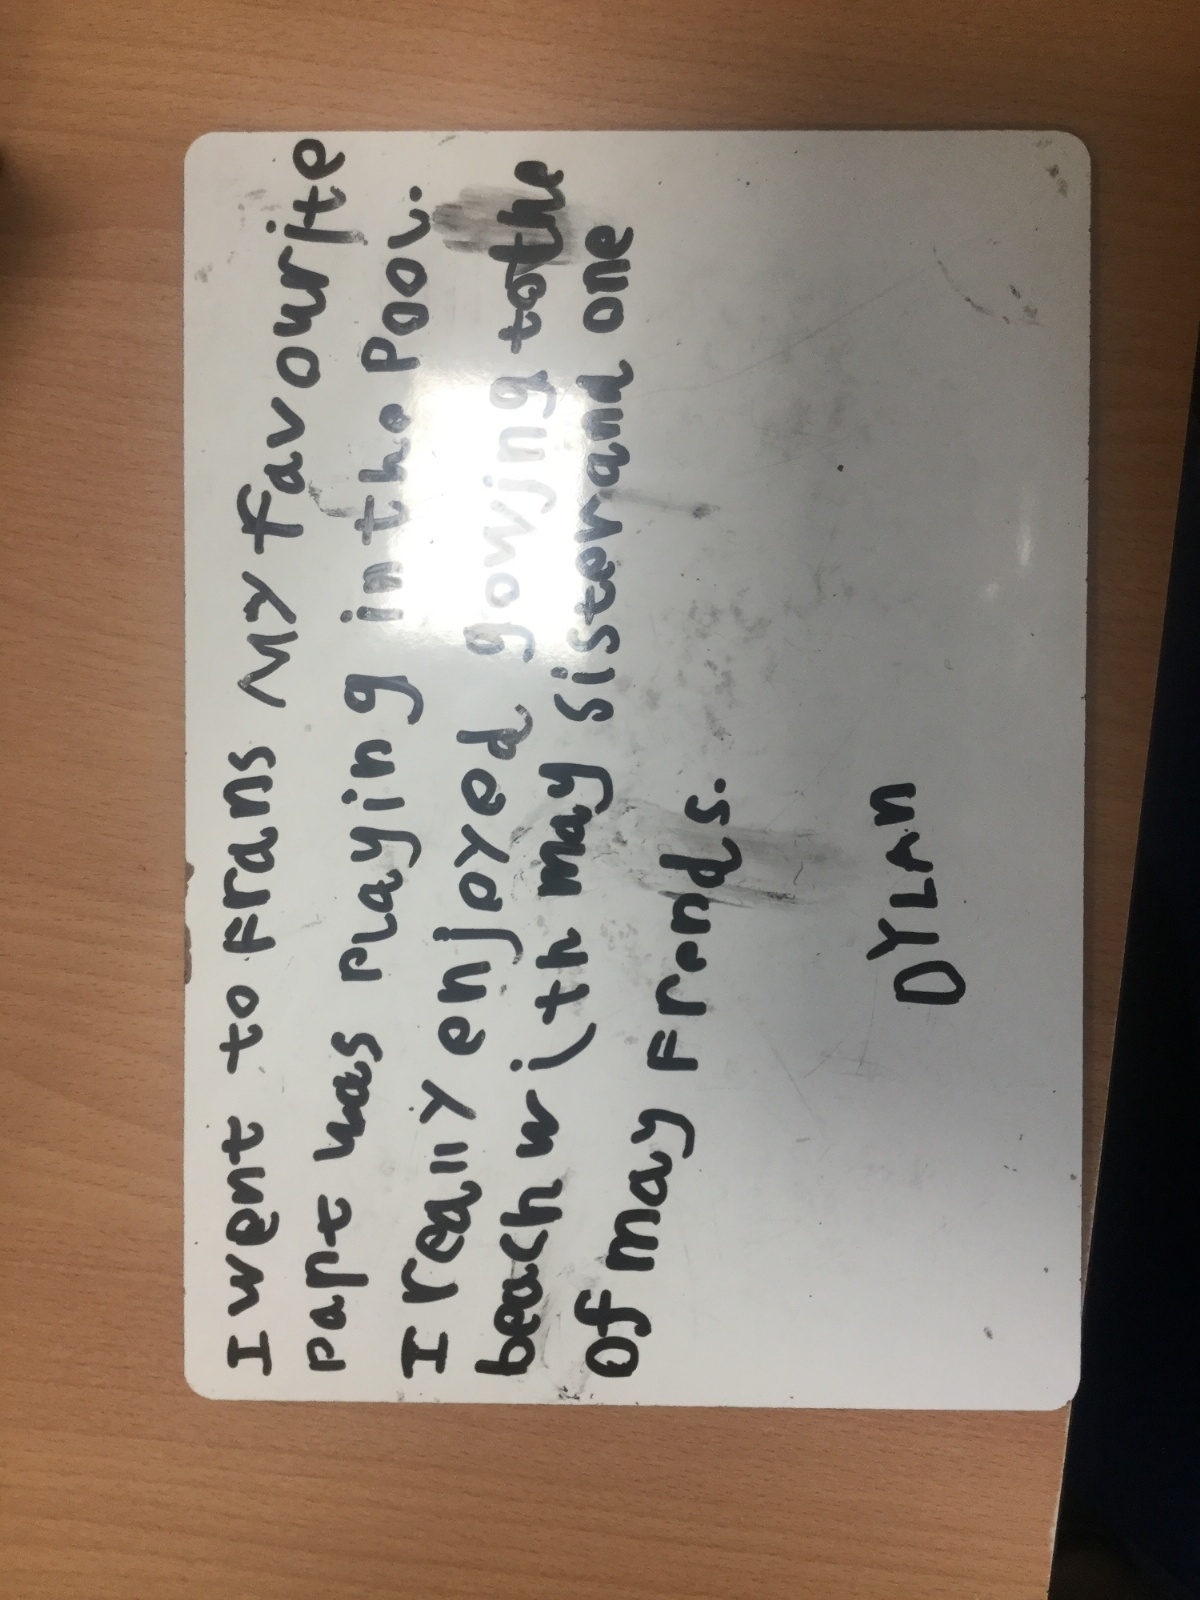 I went to Frans My favourite
papt was playing in the Pool.
I really enjoyed gowing to the
beach with may sister and one
of may Frends.
DYLAN